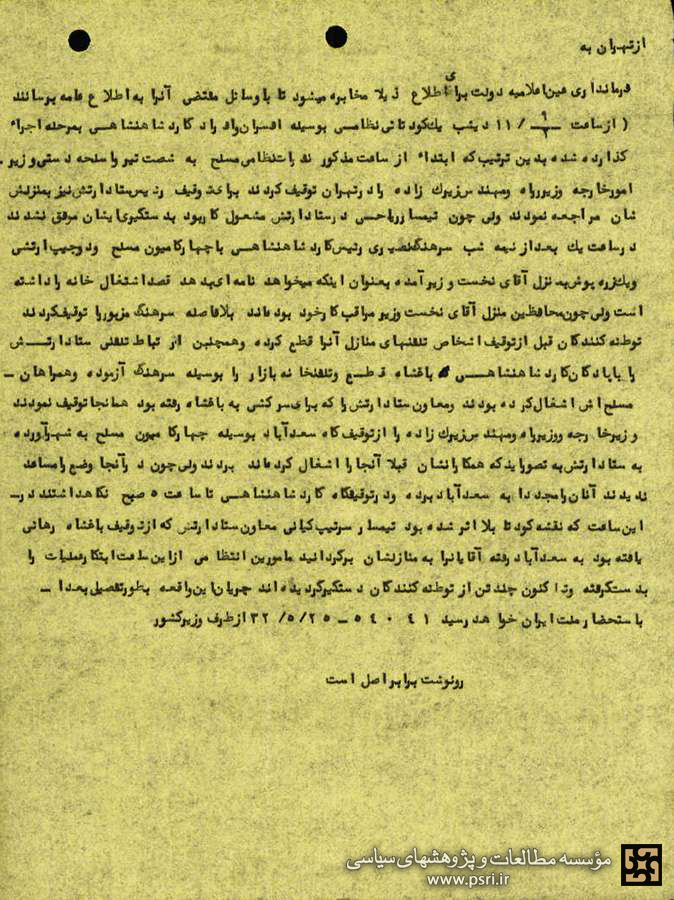 از تهران به
فرمانداری عین اعلامیه دولت برای اطلاع ذیلا مخابره میشود تا با وسائل مقتضی آنرا به اطلاع عامه برسانند
( از ساعت ۱۱/ دیشب یک کودتای نظامی بوسیله افسران و افراد گارد شاهنشاهی بمرحله اجراء
گذارده شده بدین ترتیب که ابتداء از ساعت مذکور نفرات نظامی مسلح به شصت تیر و اسلحه دستی وزیر
امور خارجه وزیر راه و مهندس زیرک زاده را در تهران توقیف کردند برای توقیف رئیس ستاد ارتش نیز بمنزلش
شان مراجعه نمودند ولی چون تیمسار ریاحی در ستاد ارتش مشغول کار بود بدستگیری ایشان موفق نشدند
در ساعت یک بعد از نیمه شب سرهنگ نصیری رئیس گارد شاهنشاهی با چهار کامیون مسلح و دو جیپ ارتشی
ویک زره پوش بمنزل آقای نخست وزیر آمده بعنوان اینکه میخواهد نامه ای بدهد قصد اشغال خانه را داشته
است ولی چون محافظین منزل آقای نخست وزیر مراقب کار خود بوده اند بلافاصله سرهنگ مزبور را توقیف کردند
توطئه کنندگان قبل از توقیف اشخاص تلفنهای منازل آنرا قطع کرده وهمچنین ارتباط تلفنی ستاد ارتش
را با پادگان گارد شاهنشاهی باغشاه قطع وتلفنخانه بازار را بوسیله سرهنگ آزموده وهمراهان -
مسلح اش اشغال کرده بودند ومعاون ستاد ارتش را که برای سرکشی به باغشاه رفته بود همانجا توقیف نمودند
وزیر خارجه ووزیر راه ومهندس زیرک زاده را از توقیف گاه سعد آباد بوسیله چهار کامیون مسلح به شهر آورده
به ستاد ارتش به تصور اینکه همکارانشان قبلا آنجا را اشغال کرده اند بردند ولی چون در آنجا وضع را مساعد
ندیدند آنان را مجددا به سعد آباد برده ودر توقیفگاه گارد شاهنشاهی تا ساعت ۵ صبح نگاهداشتند در-
این ساعت که نقشه کودتا بلا اثر شده بود تیمسار سرتیپ کیانی معاون ستاد ارتش که از توقیف باغشاه رهائی
یافته بود به سعد آباد رفته آقایانرا به منازلشان برگردانید مامورین انتظامی از این ساعت ابتکار عملیات را
بدست گرفته وتا کنون چند تن از توطئه کنندگان دستگیر گردیده اند جریان این واقعه بطور تفصیل بعدا -
باستحضار ملت ایران خواهد رسید ۵۴۰۴۱ - ۳۲/۵/۲۵ از طرف وزیر کشور
رونوشت برابر اصل است
مؤسسه مطالعات و پژوهشهای سیاسی
www.psri.ir